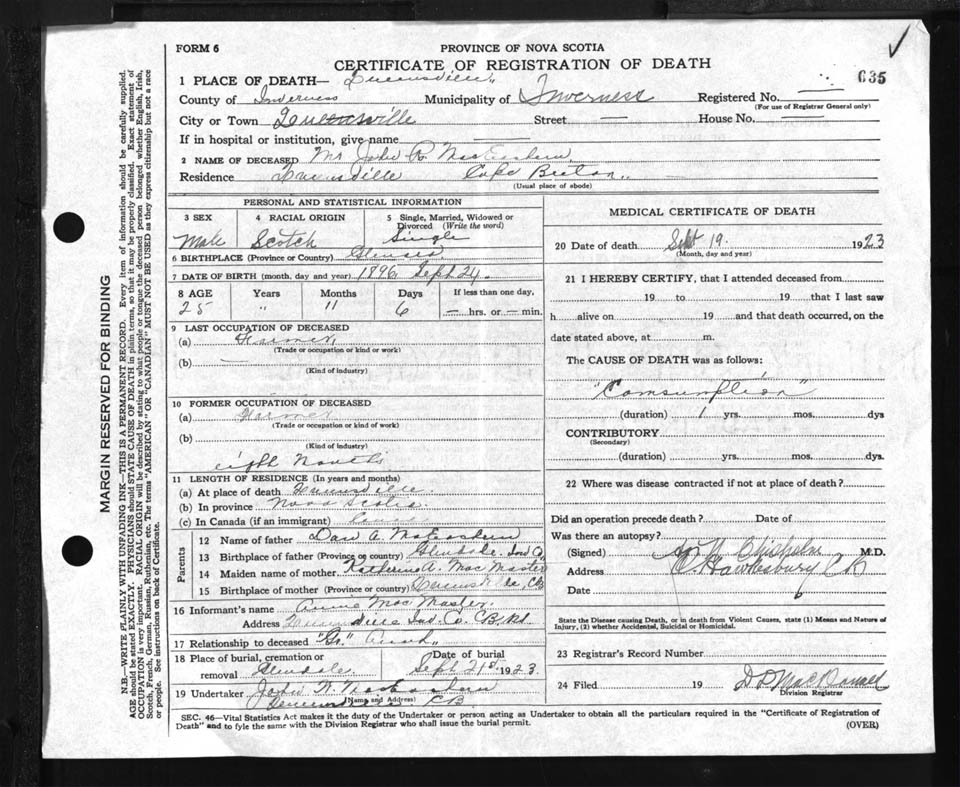 FORM 6
PROVINCE OF NOVA SCOTIA
CERTIFICATE OF REGISTRATION OF DEATH
635
1 PLACE OF DEATH— Queensville
County of Inverness Municipality of Inverness Registered No.
(For use of Registrar General only)
City or Town Queensville Street — House No. —
If in hospital or institution, give name —
2 NAME OF DECEASED Mr John R. MacEachern
Residence Queensville Cape Breton
(Usual place of abode)
PERSONAL AND STATISTICAL INFORMATION
3 SEX 4 RACIAL ORIGIN 5 Single, Married, Widowed or Divorced (Write the word)
Male Scotch Single
6 BIRTHPLACE (Province or Country)
7 DATE OF BIRTH (month, day and year) 1896 Sept 24.
8 AGE Years Months Days If less than one day,
25 " 11 6 — hrs. or — min.
9 LAST OCCUPATION OF DECEASED
(a) Farmer
(Trade or occupation or kind or work)
(b)
(Kind of industry)
10 FORMER OCCUPATION OF DECEASED
(a) Farmer
(Trade or occupation or kind of work)
(b)
(Kind of industry)
eigth
11 LENGTH OF RESIDENCE (In years and months)
(a) At place of death Queensville
(b) In province Nova Scotia
(c) In Canada (if an immigrant)
Parents
12 Name of father Dan A. MacEachern
13 Birthplace of father (Province or country) Glendale. Inv Co
14 Maiden name of mother Katherine A. MacMaster
15 Birthplace of mother (Province or country) Queensville, CB
16 Informant's name Annie MacMaster
Address Queensville Inv. Co. CB.
17 Relationship to deceased
18 Place of burial, cremation or removal Glendale Date of burial Sept 21st 1923
19 Undertaker John N. MacEachern
(Name and Address) CB
MEDICAL CERTIFICATE OF DEATH
20 Date of death Sept 19. 1923
(Month, day and year)
21 I HEREBY CERTIFY, that I attended deceased from
19 to 19 that I last saw
h alive on 19 and that death occurred, on the
date stated above, at m.
The CAUSE OF DEATH was as follows:
"Comsumption"
(duration) 1 yrs. mos. dys
CONTRIBUTORY
(Secondary)
(duration) yrs. mos. dys.
22 Where was disease contracted if not at place of death?
Did an operation precede death? Date of
Was there an autopsy?
(Signed) Chisholm M.D.
Address Hawkesbury
Date
State the Disease causing Death, or in death from Violent Causes, state (1) Means and Nature of
Injury, (2) whether Accidental, Suicidal or Homicidal.
23 Registrar's Record Number
24 Filed 19 MacDonald
Division Registrar
SEC. 46—Vital Statistics Act makes it the duty of the Undertaker or person acting as Undertaker to obtain all the particulars required in the "Certificate of Registration of
Death" and to fyle the same with the Division Registrar who shall issue the burial permit.
(OVER)
MARGIN RESERVED FOR BINDING
N.B.—WRITE PLAINLY WITH UNFADING INK—THIS IS A PERMANENT RECORD. Every item of information should be carefully supplied.
AGE should be stated EXACTLY. PHYSICIANS should STATE CAUSE OF DEATH in plain terms, so that it may be properly classified. Exact statement of
OCCUPATION is very important. RACIAL ORIGIN will be described by stating to what people or tongue the deceased person belonged whether English, Irish,
Scotch, French, German, Russian, Ruthenian, etc. The terms "AMERICAN" OR "CANADIAN" MUST NOT BE USED as they express citizenship but not a race
or people. See instructions on back of Certificate.